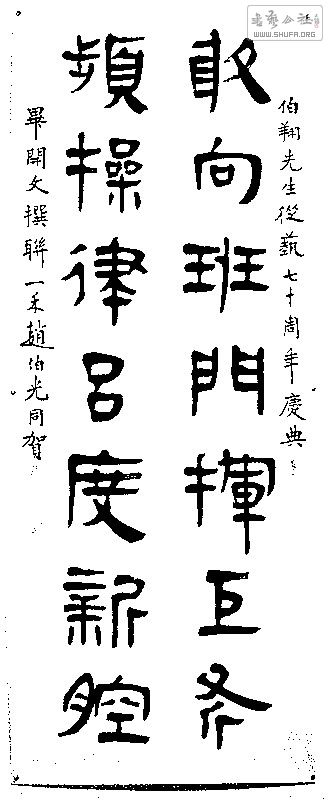 书艺公社
WWW.SHUFA.ORG
伯翔先生從藝七十周年慶典
敢向班門揮巨斧
頻操律呂度新腔
畢開文撰聯一禾趙伯光同賀